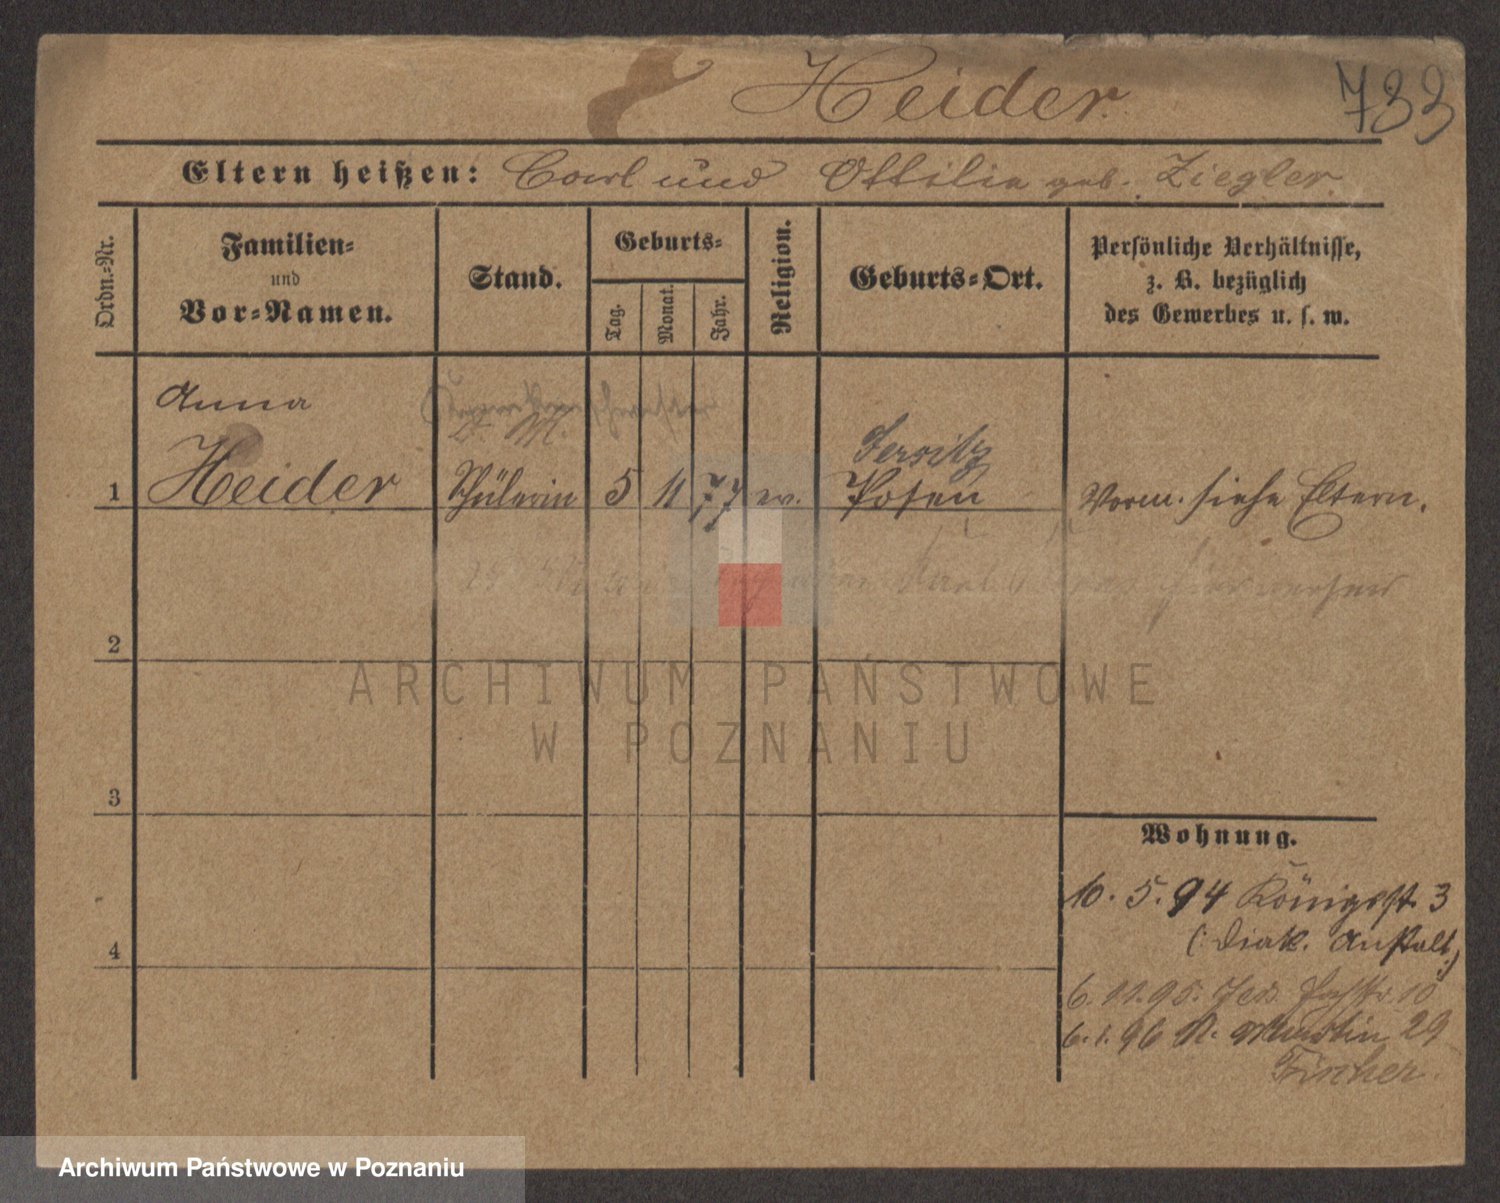 Heider.
733
Eltern heißen: Carl und Ottilie geb. Ziegler.
Ordn.-Nr.
Familien-
und
Vor-Namen.
Stand.
Geburts-
Tag.
Monat.
Jahr.
Religion.
Geburts-Ort.
Persönliche Verhältnisse,
z. B. bezüglich
des Gewerbes u. s. w.
Anna
D. M.
Jersitz
1 Heider Schülerin 5 11 77 ev. Posen Vorm. siehe Eltern.
2
ARCHIWUM PAŃSTWOWE
W POZNANIU
3
Wohnung.
10. 5. 94 Königsstr. 3
(: Diak. Anstalt :)
4
6. 11. 95. Jers. 10
6. 1. 96 St. Martin 29
Fischer.
Archiwum Państwowe w Poznaniu